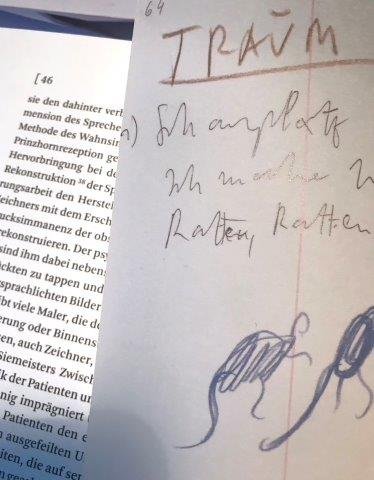 [ 46
sie den dahinter verb
mension des Spreche
Methode des Wahnsin
Prinzhornrezeption ge
Hervorbringung bei de
Rekonstruktion 36 der Sp
rungsarbeit den Herstel
eichners mit dem Ersch
ucksimmanenz der obs
rekonstruieren. Der psy
sind ihm dabei neben
ckten zu tappen und
sprachlichten Bilder
ibt viele Maler, die de
erung oder Binnens
en, auch Zeichner,
Siemeisters Zwisch
k der Patienten un
nig imprägniert
Patienten den e
n ausgefeilten U
iten, die auf se
64
TRAUM
a) Schauplatz
Ich mache
Ratten, Ratten